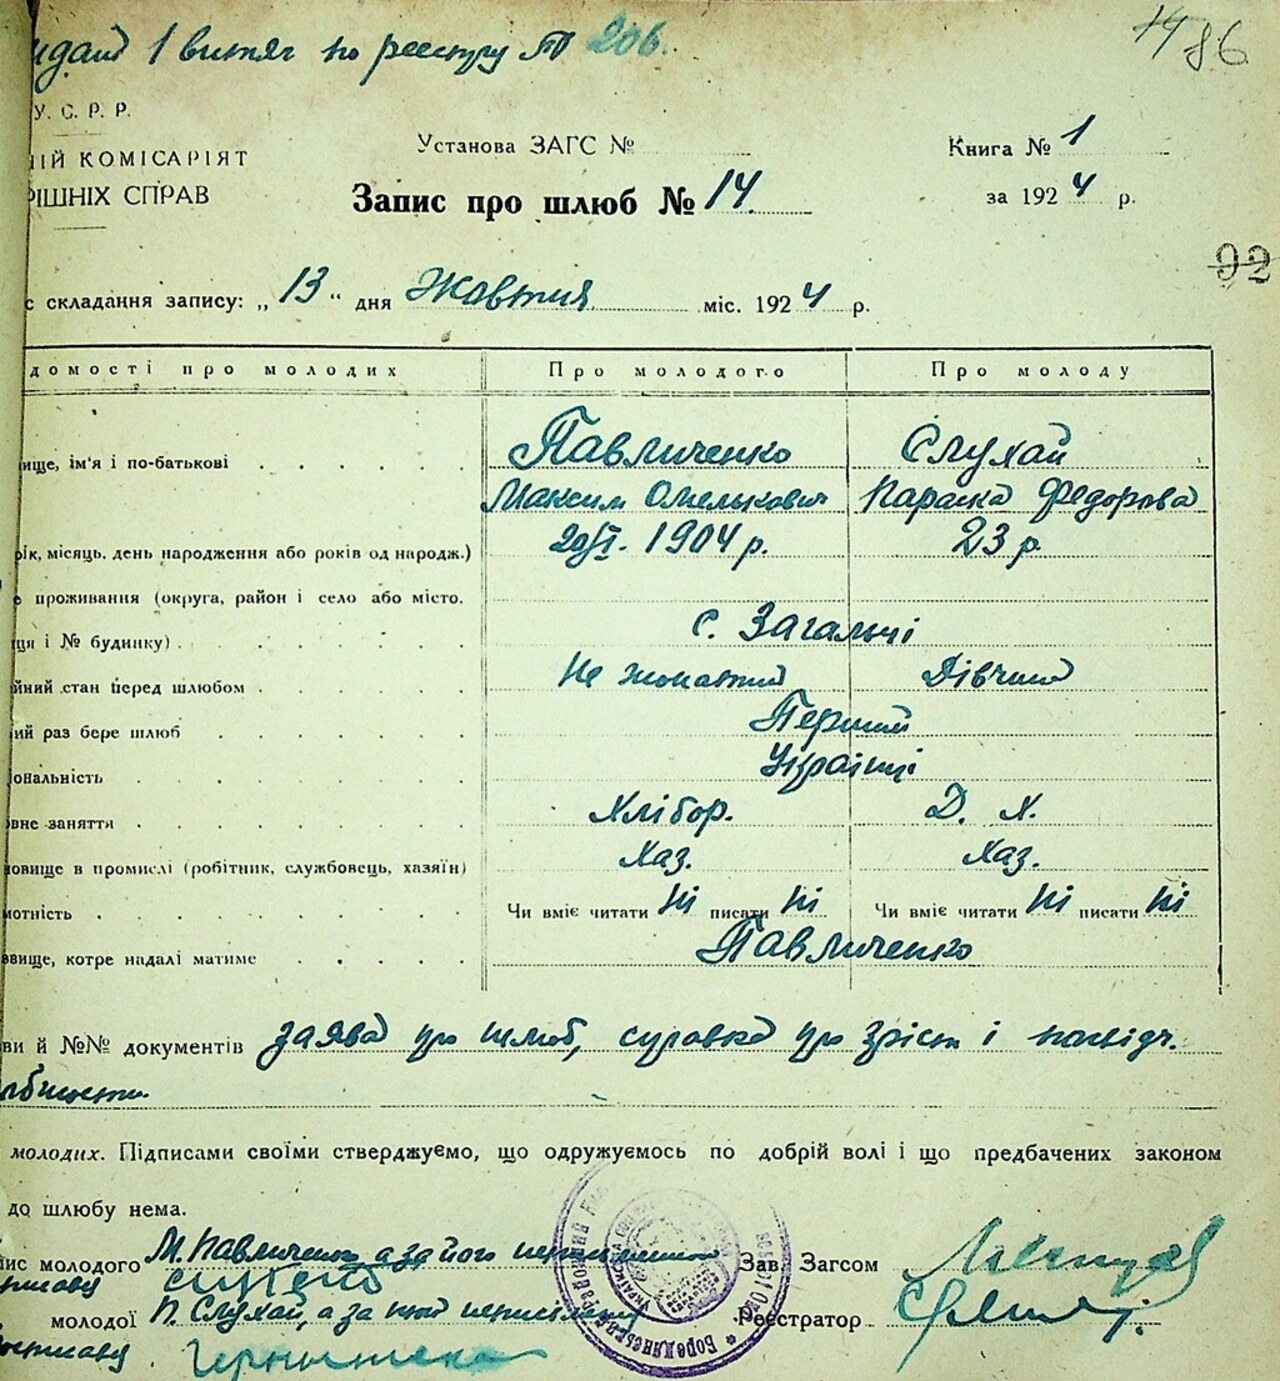 1 витяг по реєстру № 206.
14 86
У. С. Р. Р.
ІЙ КОМІСАРІЯТ
РІШНІХ СПРАВ
Установа ЗАГС №
Книга № 1
Запис про шлюб № 14.
за 1924 р.
92
с складання запису: „13“ дня Жовтня міс. 1924 р.
домості про молодих Про молодого Про молоду
ище, ім'я і по-батькові Павличенко Слухай
Максим Омелькович Параска Федорова
рік, місяць, день народження або років од народж.) 20/І. 1904 р. 23 р.
е проживання (округа, район і село або місто,
ця і № будинку) с. Загальці
йний стан перед шлюбом Не жонатий Дівчина
ий раз бере шлюб Перший
іональність Українці
овне заняття Хлібор. Д. Х.
новище в промислі (робітник, службовець, хазяїн) Хаз. Хаз.
мотність Чи вміє читати Ні писати Ні Чи вміє читати Ні писати Ні
звище, котре надалі матиме Павличенко
ви й №№ документів заява про шлюб, справка про зріст і посвідч.
молодих. Підписами своїми стверджуємо, що одружуємось по добрій волі і що предбачених законом
до шлюбу нема.
ис молодого М. Павличенко а за його неписьменого Зав. Загсом
молодої П. Слухай, а за неписьмену Реєстратор